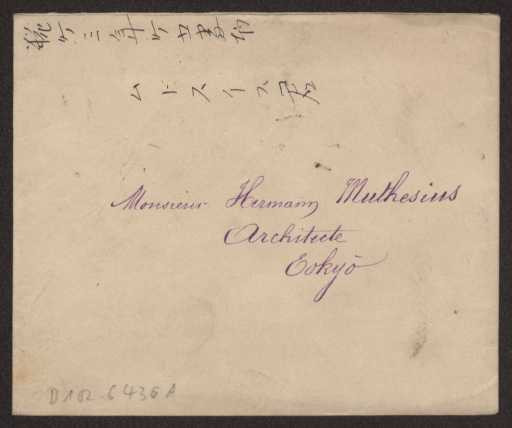 三年
ムトスイス君
Monsieur Hermann Muthesius
Architecte
Tokyō
D102-6436A